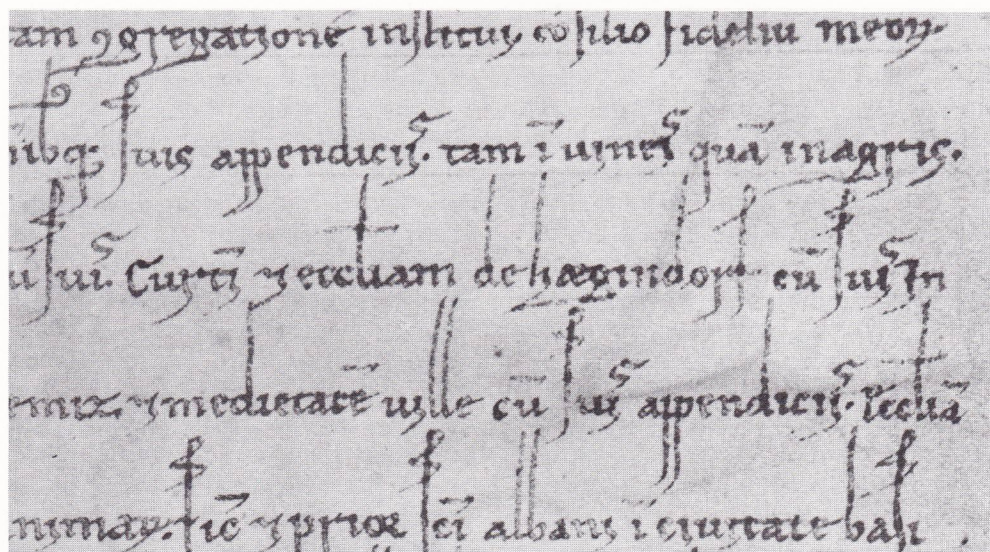 tam ꝯgregationē institui. cōsilio fideliū meoꝝ.
nibq; suis appendiciis. tam ī uineis quā in agris.
ū suis. Curtī ⁊ eccłiam de hægindorf cū suis In
emiz. ⁊ medietatē uille cū suis appendiciis. Eccłiā
nimaꝝ. sic̄ ⁊ prior sc̄i albani ī ciuitate basi